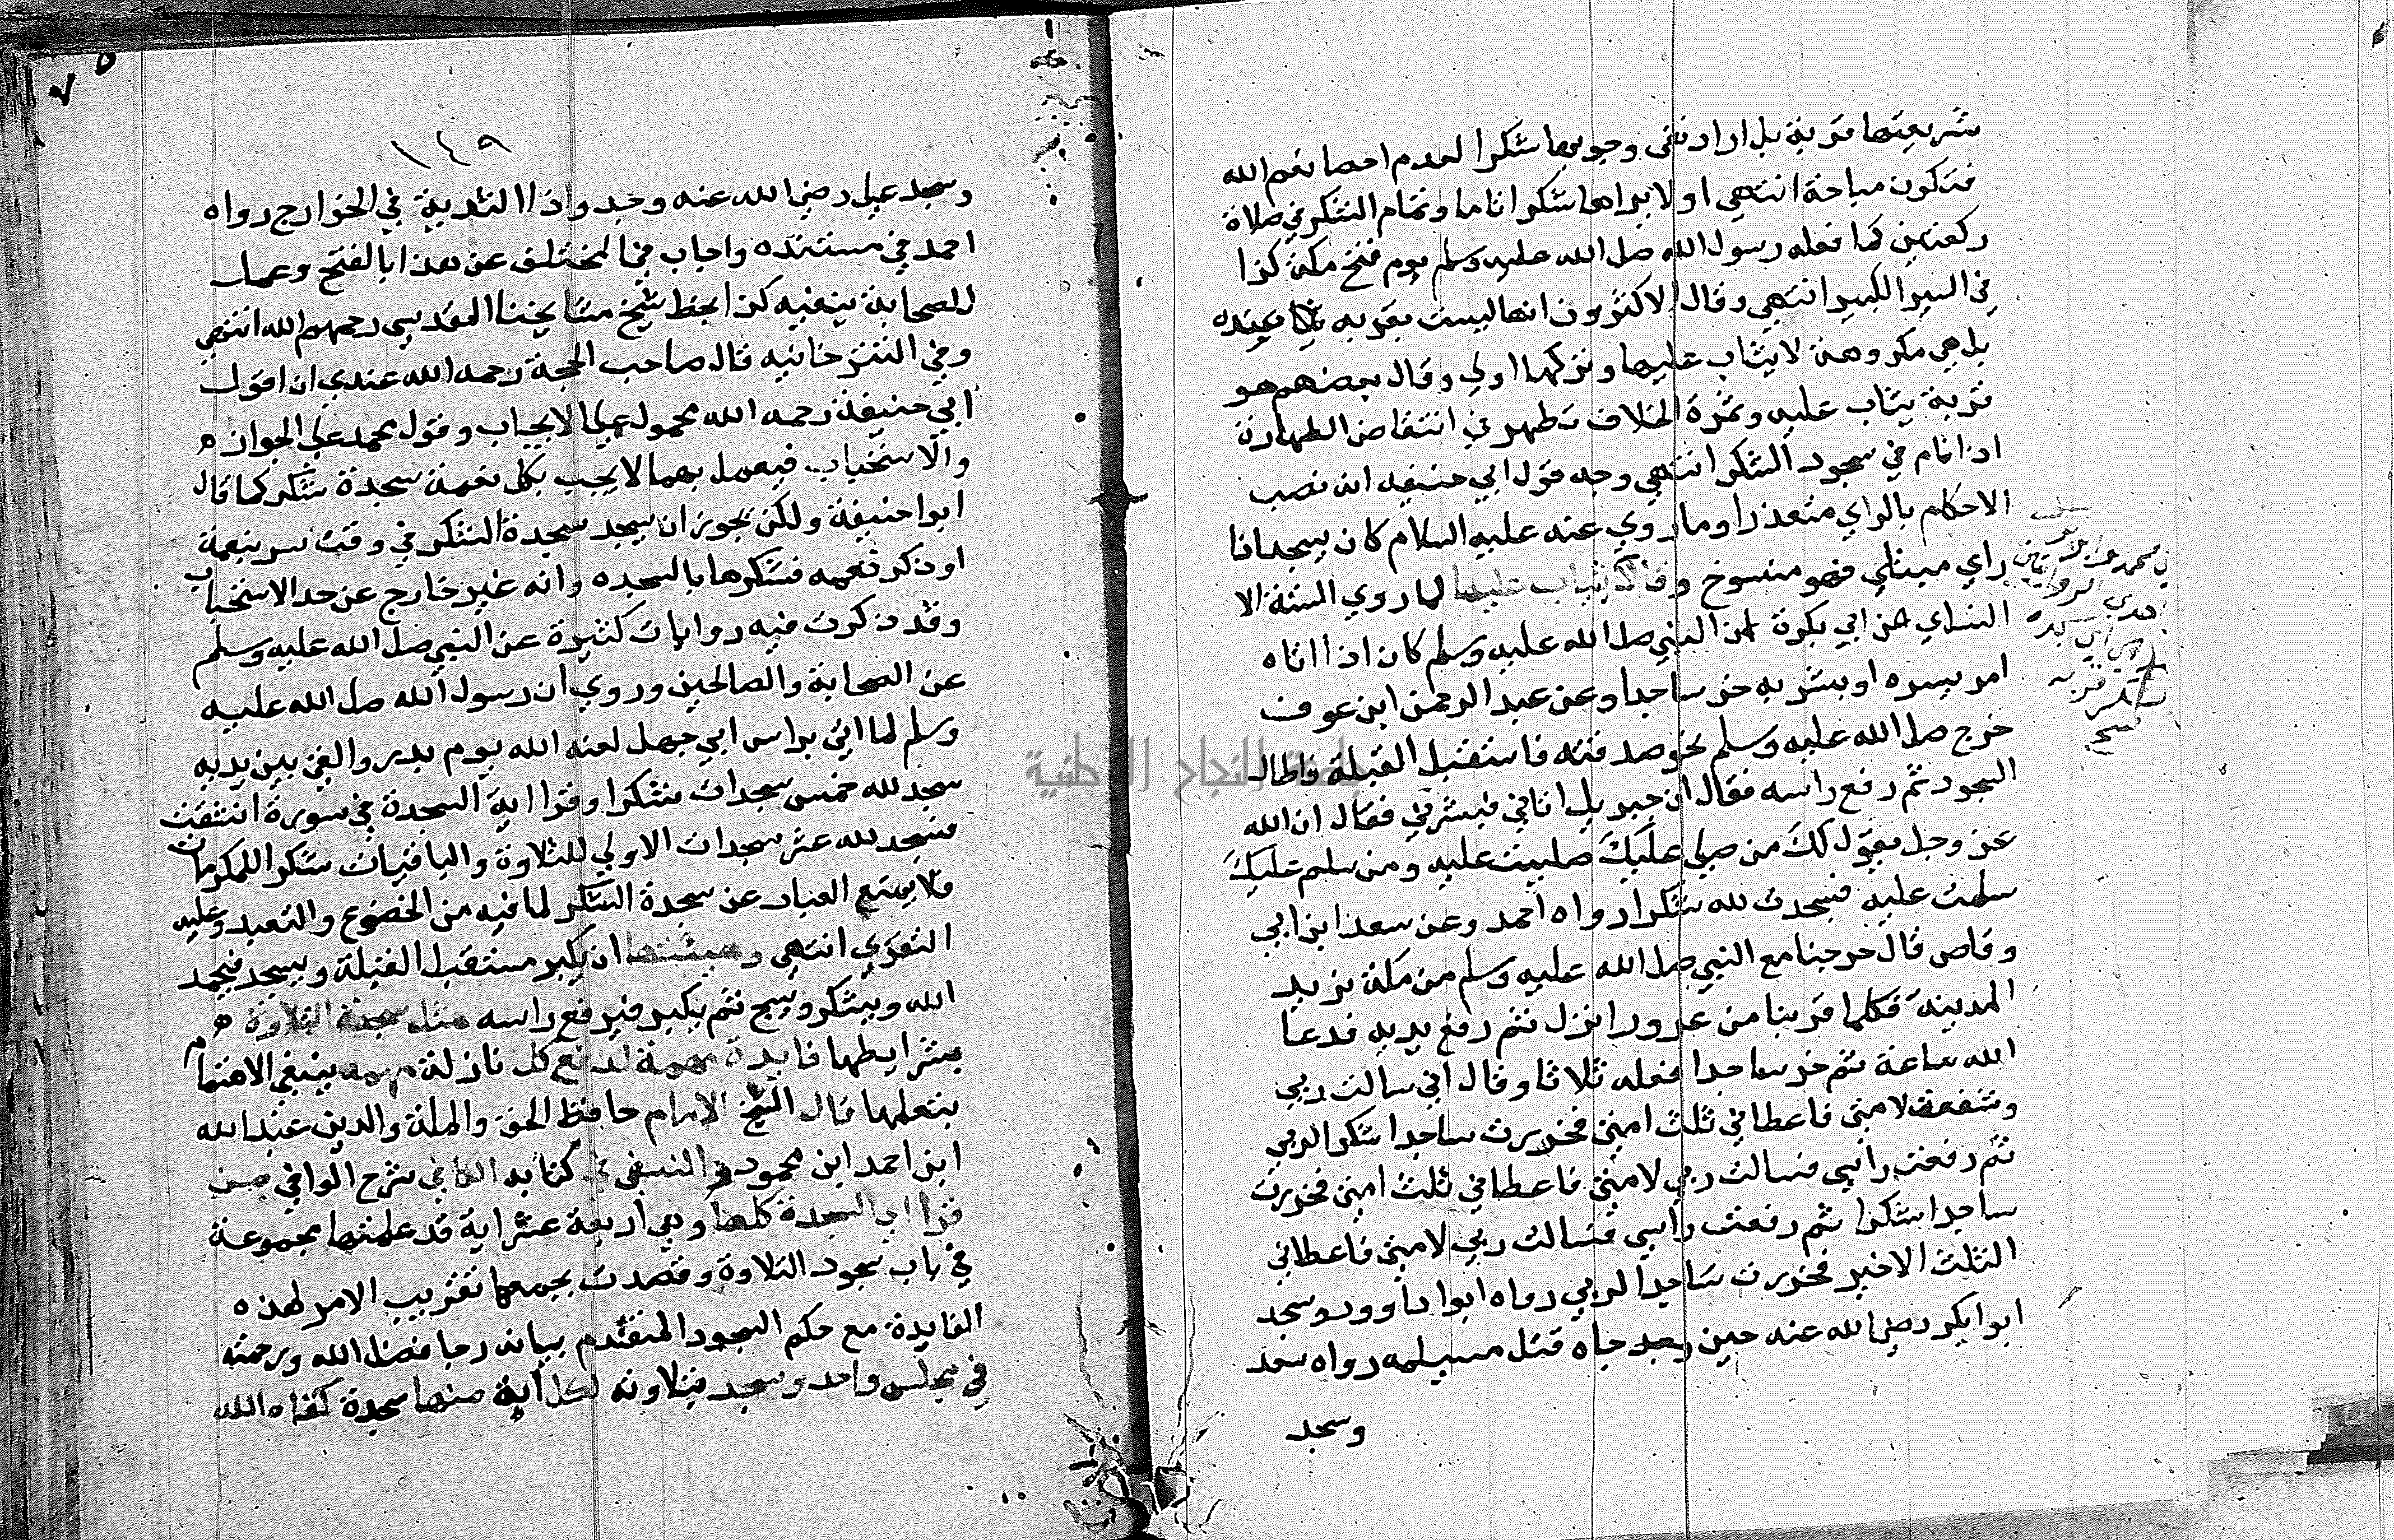 شريعتها قربة بل اراد نفى وجوبها شكرا لعدم احصا نعم الله
فتكون مباحة انتهى او لا يراها شكرا تاما وتمام الشكر في صلاة
ركعتين كما فعله رسول الله صلى الله عليه وسلم يوم فتح مكة كذا
في السير الكبير انتهى وقال الاكثرون انها ليست بقربه عنده
بل هي مكروهة لا يثاب عليها وتركها اولي وقال بعضهم هو
قربة يثاب عليه وثمرة الخلاف تظهر في انتقاض الطهارة
اذا نام في سجود الشكر انتهى وجه قول ابي حنيفه ان نصب
الاحكام بالراي متعذرا وما روي عنه عليه السلام كان يسجد اذا
راي مبتلي فهو منسوخ وقالا يثاب عليها لما روي الستة الا
النساي عن ابي بكرة ان النبي صلى الله عليه وسلم كان اذا اتاه
امر يسره او بشر به خر ساجدا وعن عبد الرحمن ابن عوف
خرج صلى الله عليه وسلم نحو صدقته فاستقبل القبلة فاطال
السجود ثم رفع راسه فقال ان جبريل اتاني فبشرني فقال ان الله
عز وجل يقول لك من صلى عليك صليت عليه ومن سلم عليك
سلمت عليه فسجدت لله شكرا رواه احمد وعن سعد ابن ابي
وقاص قال خرجنا مع النبي صلى الله عليه وسلم من مكة نريد
المدينة فكلما قربنا من عزورا نزل ثم رفع يديه فدعا
الله ساعة ثم خر ساجدا فعله ثلاثا وقال اني سالت ربي
وشفعت لامتي فاعطاني ثلث امتي فخررت ساجدا شكرا لربي
ثم رفعت راسي فسالت ربي لامتي فاعطاني ثلث امتي فخررت
ساجدا شكرا ثم رفعت راسي فسالت ربي لامتي فاعطاني
الثلث الاخير فخررت ساجدا لربي رواه ابوا داوود وسجد
ابوا بكر رضي الله عنه حين جاه قتل مسيلمه رواه سعد
وسجد
جامعة النجاح الوطنية
١٤٩
وسجد علي رضي الله عنه وجد واذا الثدية في الخوارج رواه
احمد في مسنده واجاب في المختلف عن هذا بالفتح وعمل
للصحابة ينفيه كذا بخط شيخ مشايخنا المقدسي رحمهم الله انتهى
وفي التترخانيه قال صاحب الحجة رحمه الله عندي ان اقول
ابي حنيفة رحمه الله محمول على الايجاب وقول محمد على الجواز
والاستحباب فيعمل بهما لا يجب بكل نعمة سجدة شكر كما قال
ابوا حنيفة ولكن يجوز ان يسجد سجدة الشكر في وقت سر بنعمة
او ذكر نعمه فشكرها بالسجده وانه غير خارج عن حد الاستحباب
وقد ذكرت فيه روايات كثيرة عن النبي صلى الله عليه وسلم
عن الصحابة والصالحين وروي ان رسول الله صلى الله عليه
وسلم لما اتي براس ابي جهل لعنه الله يوم بدر والقي بين يديه
سجد لله خمس سجدات شكرا وقرا اية السجدة في سورة انشقت
فسجد لله عشر سجدات الاولي للتلاوة والباقيات شكرا للمكرمات
فلا يمنع العباد عن سجدة الشكر لما فيه من الخضوع والتعبد وعليه
الفتوي انتهى وهيئتها ان يكبر مستقبل القبلة ويسجد فيحمد
الله ويشكر ويسبح ثم يكبر فيرفع راسه مثل سجدة التلاوة
بشرايطها فايدة مهمة لدفع كل نازلة مهمه ينبغي الاهتمام
بتعلمها قال الشيخ الامام حافظ الحق والملة والدين عبد الله
ابن احمد ابن محمود النسفي في كتابه الكافي شرح الوافي من
قرا اي السجدة كلها وهي اربعة عشر اية قد علمتها مجموعة
في باب سجود التلاوة وقصدت بجمعها تقريب الامر لهذه
الفايدة مع حكم السجود المتقدم بيانه رجا فضل الله ورحمته
في مجلس واحد وسجد بتلاوته لكل اية منها سجدة كفاه الله